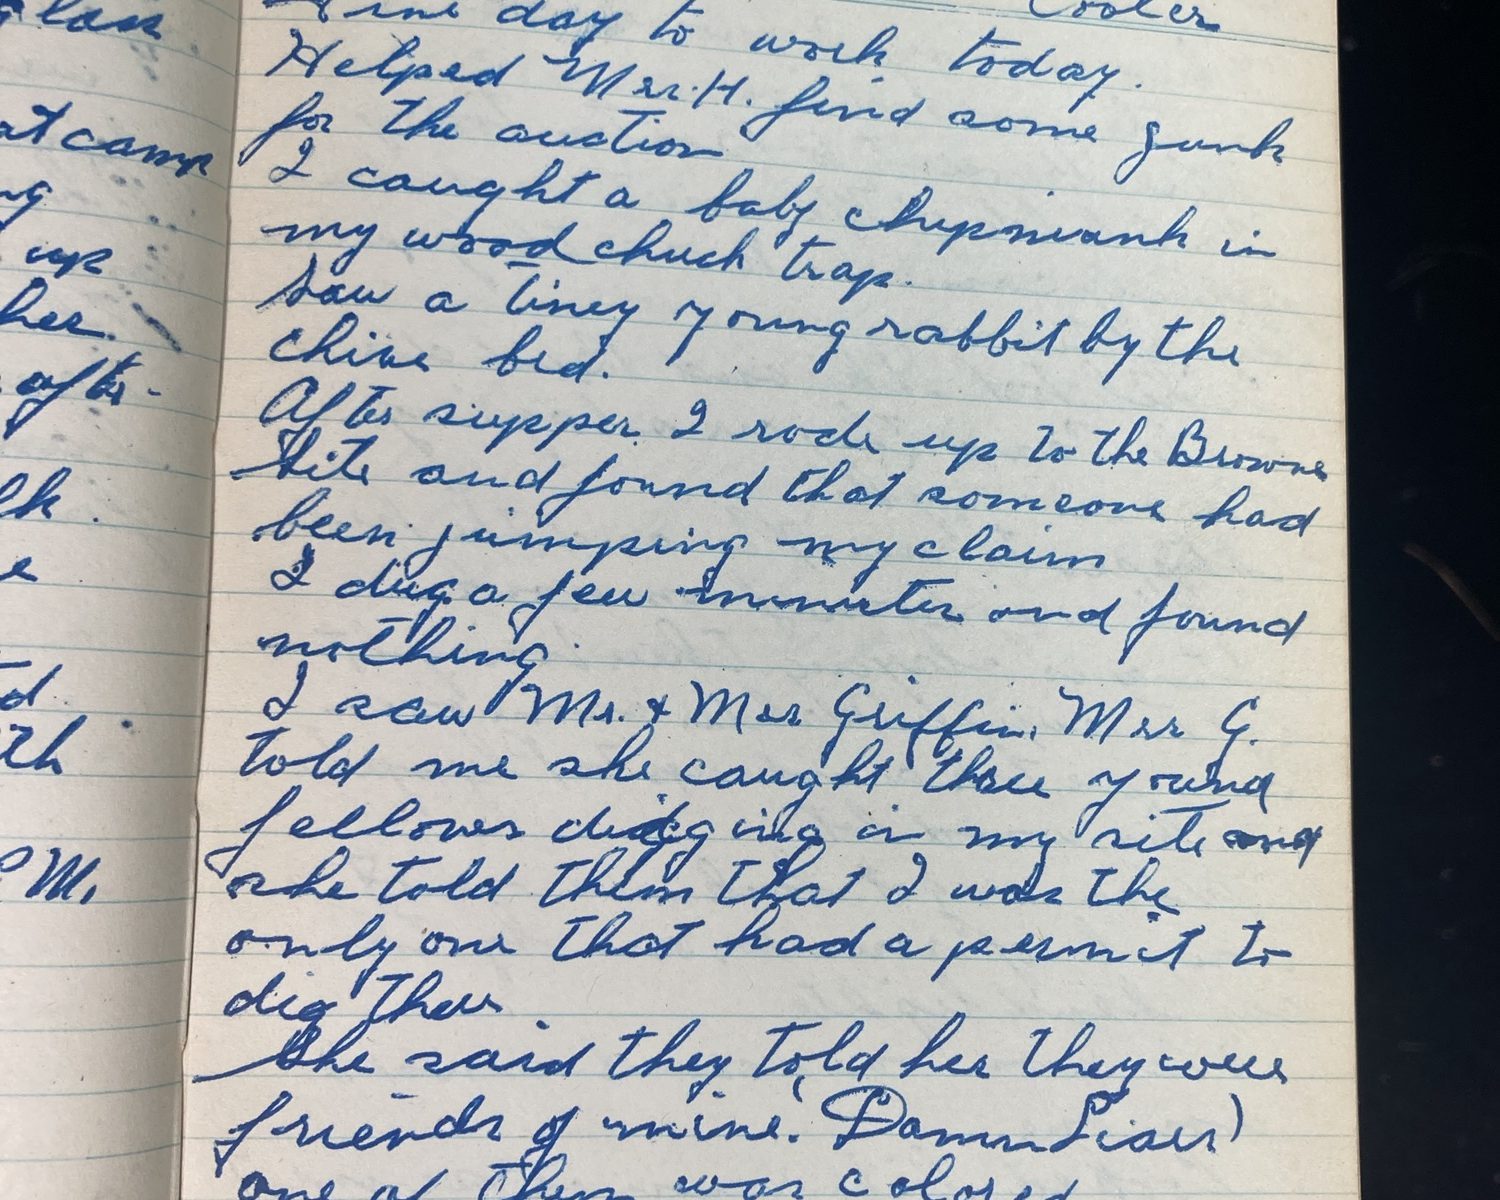 Cooler
Fine day to work today.
Helped Mrs. H. find some junk
for the auction
I caught a baby chipmunk in
my wood chuck trap.
Saw a tiney young rabbit by the
chive bed.
After supper I rode up to the Browne
Site and found that someone had
been jumping my claim
I dug a few minutes and found
nothing.
I saw Mr. & Mrs Griffin. Mrs G.
told me she caught three young
fellows digging in my site and
she told them that I was the
only one that had a permit to
dig there
She said they told her they were
friends of mine. (Damn Liars)
one of them was colored
at camp
ng
up
her.
after-
lk.
e
d
th
M.